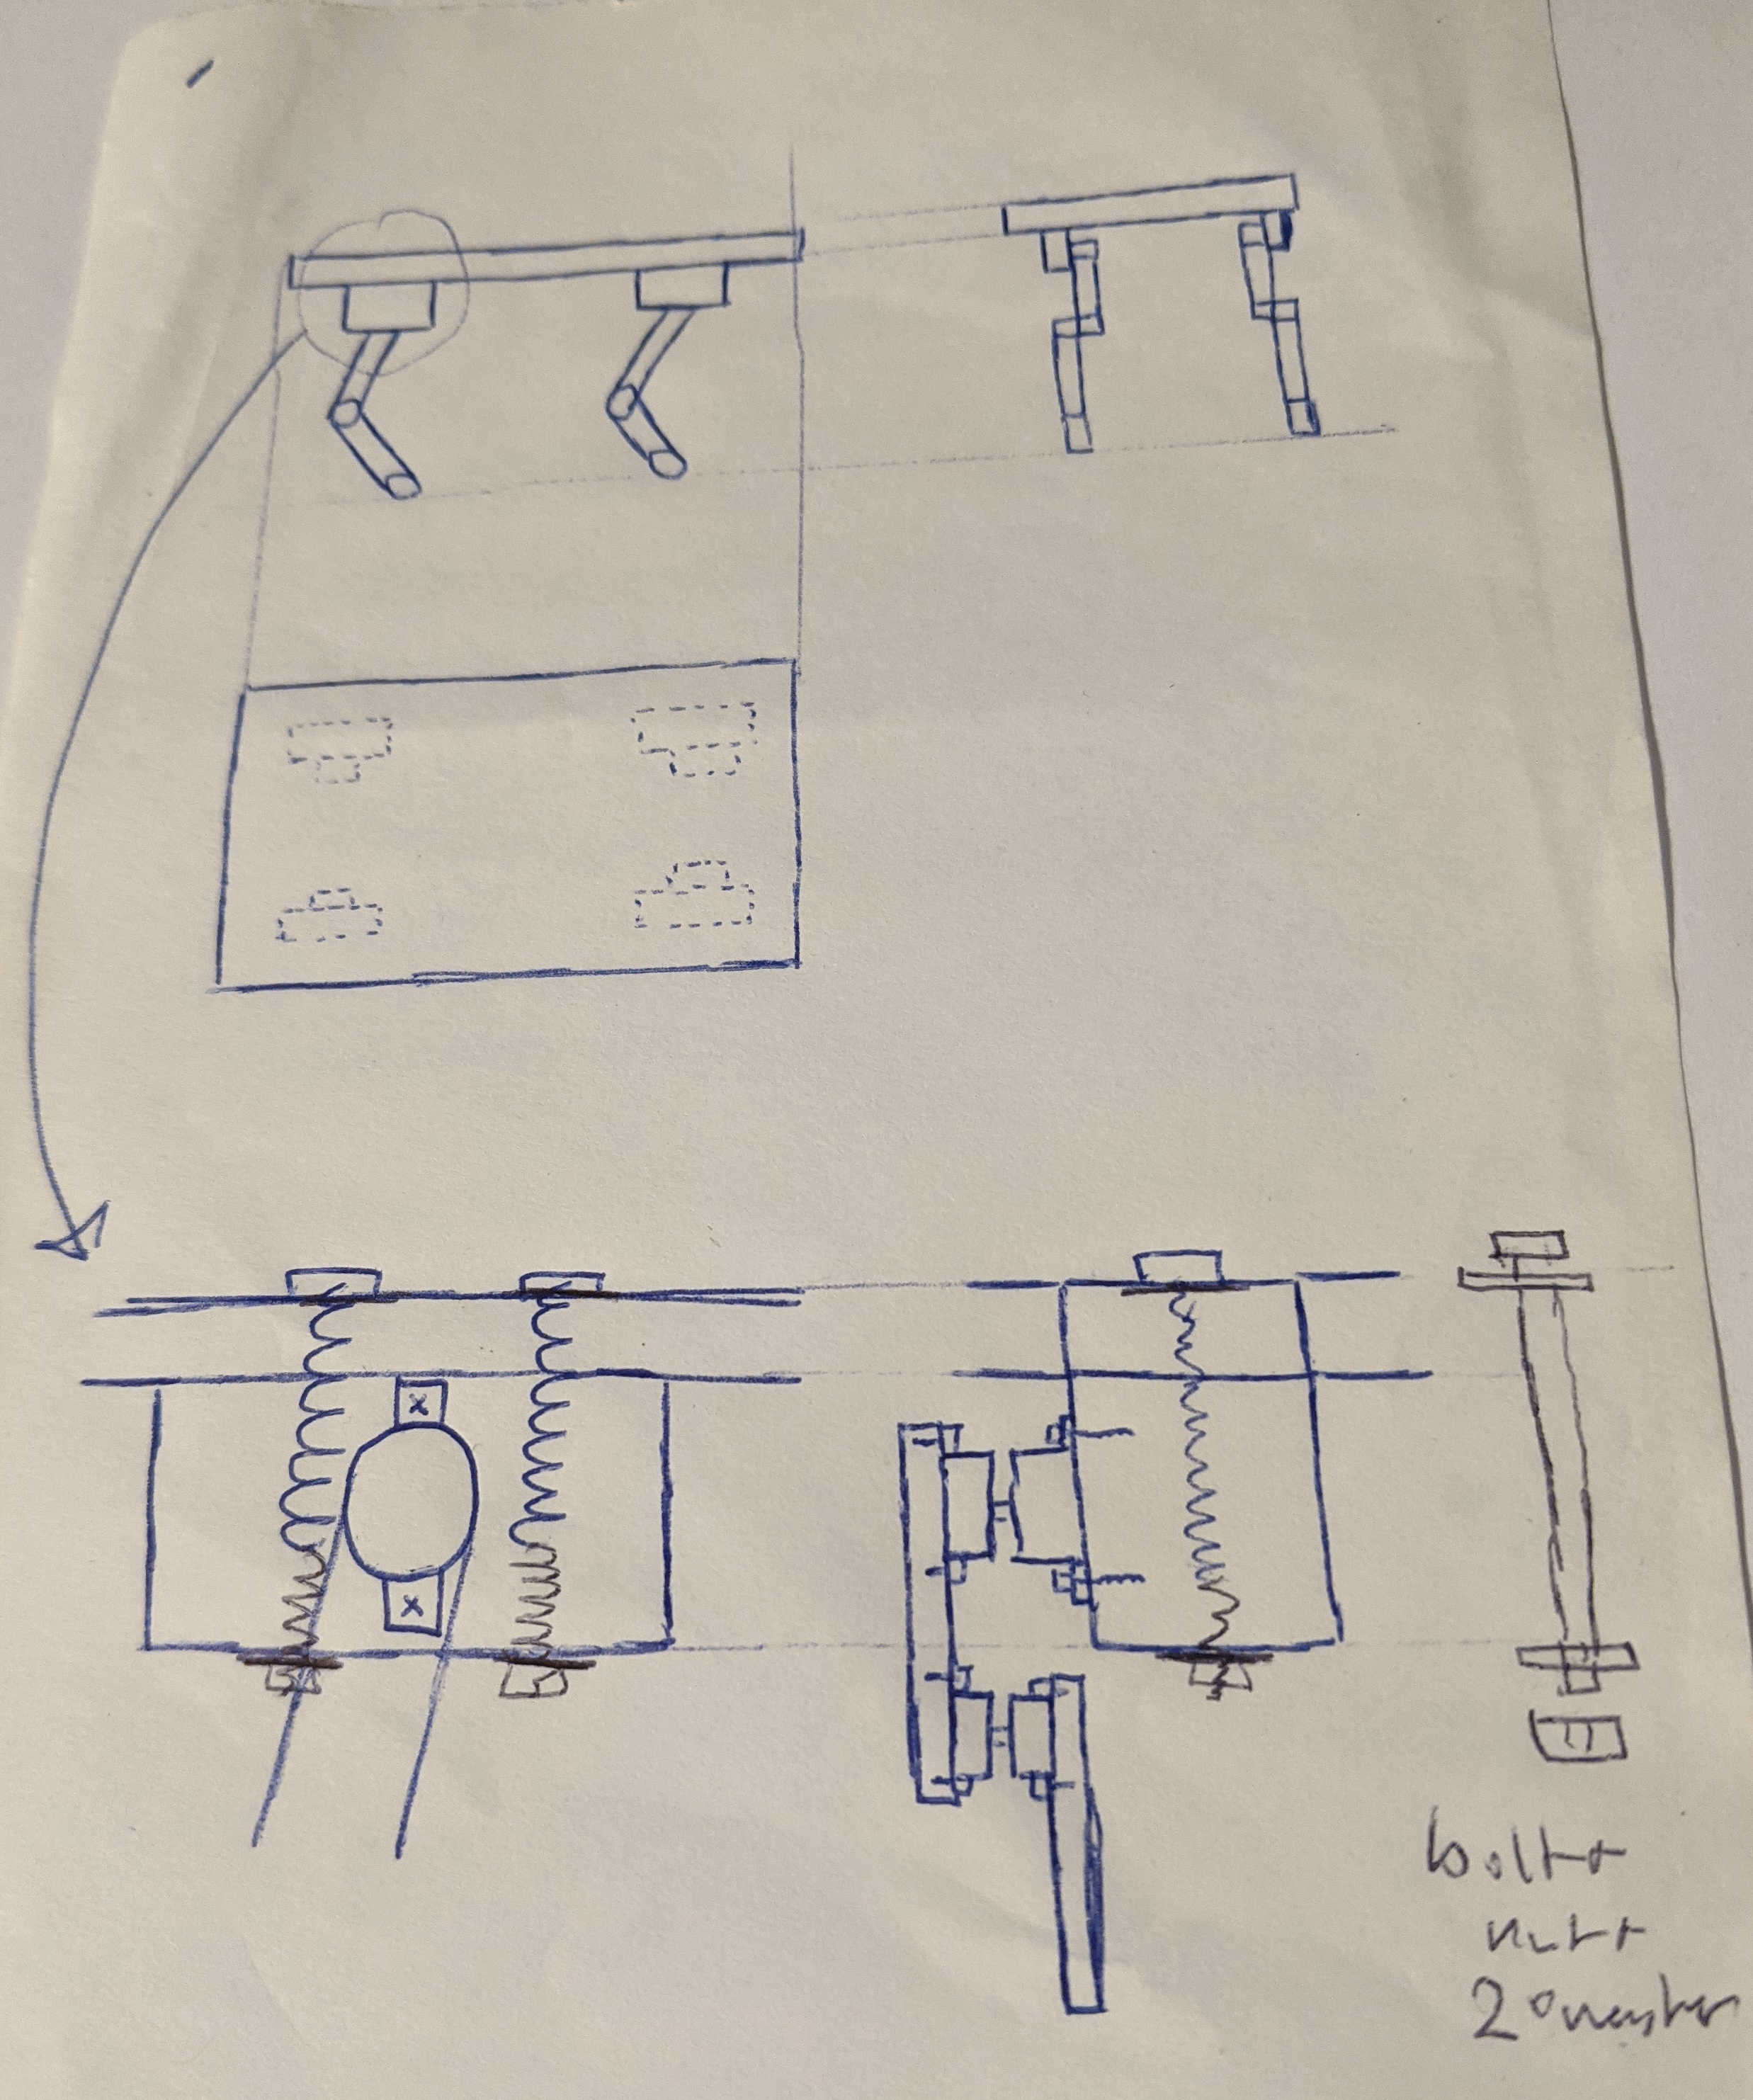 x
x
bolt +
nut +
2 washer